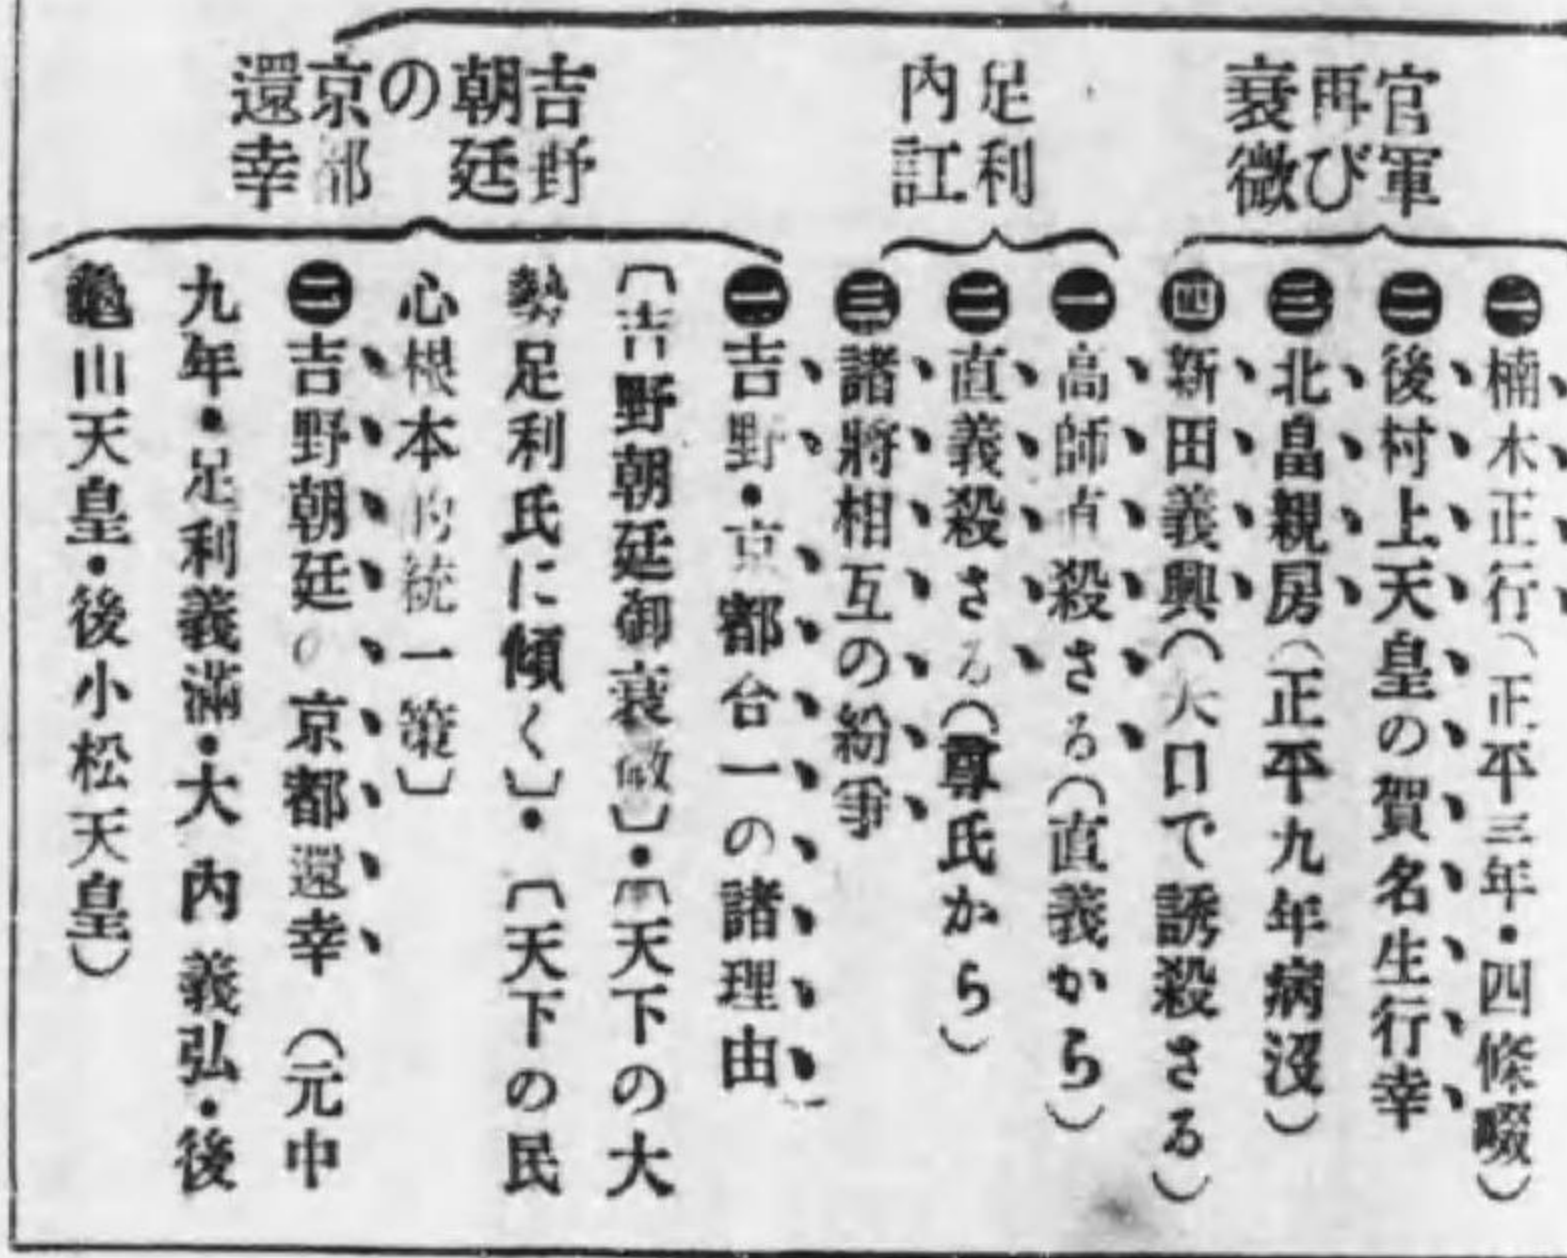 官軍
再び
衰微
㊀楠木正行（正平三年・四條畷）
㊁後村上天皇の賀名生行幸
㊂北畠親房（正平九年病沒）
㊃新田義興（矢口で誘殺さる）
足利
內訌
㊀高師直殺さる（直義から）
㊁直義殺さる（尊氏から）
㊂諸將相互の紛爭
吉野
朝廷
の
京都
還幸
㊀吉野・京都合一の諸理由
〔吉野朝廷御衰微〕・〔天下の大
勢足利氏に傾く〕・〔天下の民
心根本的統一策〕
㊁吉野朝廷の京都還幸（元中
九年・足利義滿・大內義弘・後
龜山天皇・後小松天皇）